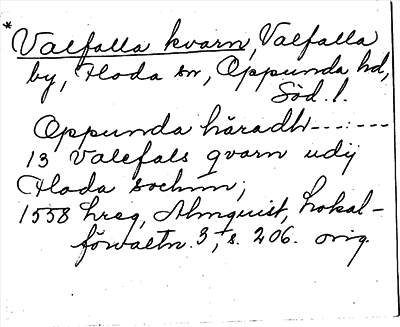 *Valfalla kvarn, Valfalla
by, Floda sn, Oppunda hd,
Söd. l.
Oppunda häradh--------
13 Valefals qvarn udij
Floda sochnn;
1558 hreg, Almquist, Lokal-
förvaltn. 3, s. 206. orig.